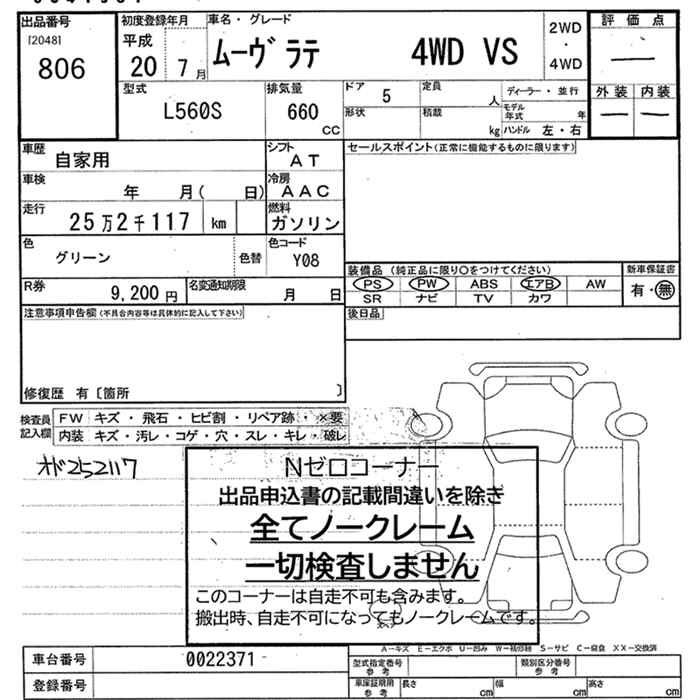 出品番号
[2048]
806
初度登録年月
平成
20 7月
車名・グレード
ムーヴ ラテ 4WD VS
2WD
・
4WD
評価点
—
外装 内装
— —
型式
L560S
排気量
660
CC
ドア 5
形状
定員 人
積載 kg
ディーラー・並行
モデル年式 年
ハンドル 左・右
車歴
自家用
シフト
AT
車検
年 月( 日)
冷房
AAC
走行
25万2千117 km
燃料
ガソリン
色
グリーン
色替
色コード
Y08
R券
9,200円
名変通知期限
月 日
セールスポイント(正常に機能するものに限ります)
装備品 (純正品に限り○をつけてください)
PS PW ABS エアB AW
SR ナビ TV カワ
新車保証書
有・無
後日品
注意事項申告欄(不具合内容等は具体的に記入して下さい)
修復歴 有〔箇所 〕
検査員記入欄
FW キズ・飛石・ヒビ割・リペア跡・×要
内装 キズ・汚レ・コゲ・穴・スレ・キレ・破レ
オド252117
Nゼロコーナー
出品申込書の記載間違いを除き
全てノークレーム
一切検査しません
このコーナーは自走不可も含みます。
搬出時、自走不可になってもノークレームです。
A—キズ E—エクボ U—凹み W—補修跡 S—サビ C—腐食 XX—交換済
車台番号 0022371
登録番号
型式指定番号 参考
類別区分番号 参考
車庫証明用 参考
長さ cm
幅 cm
高さ cm